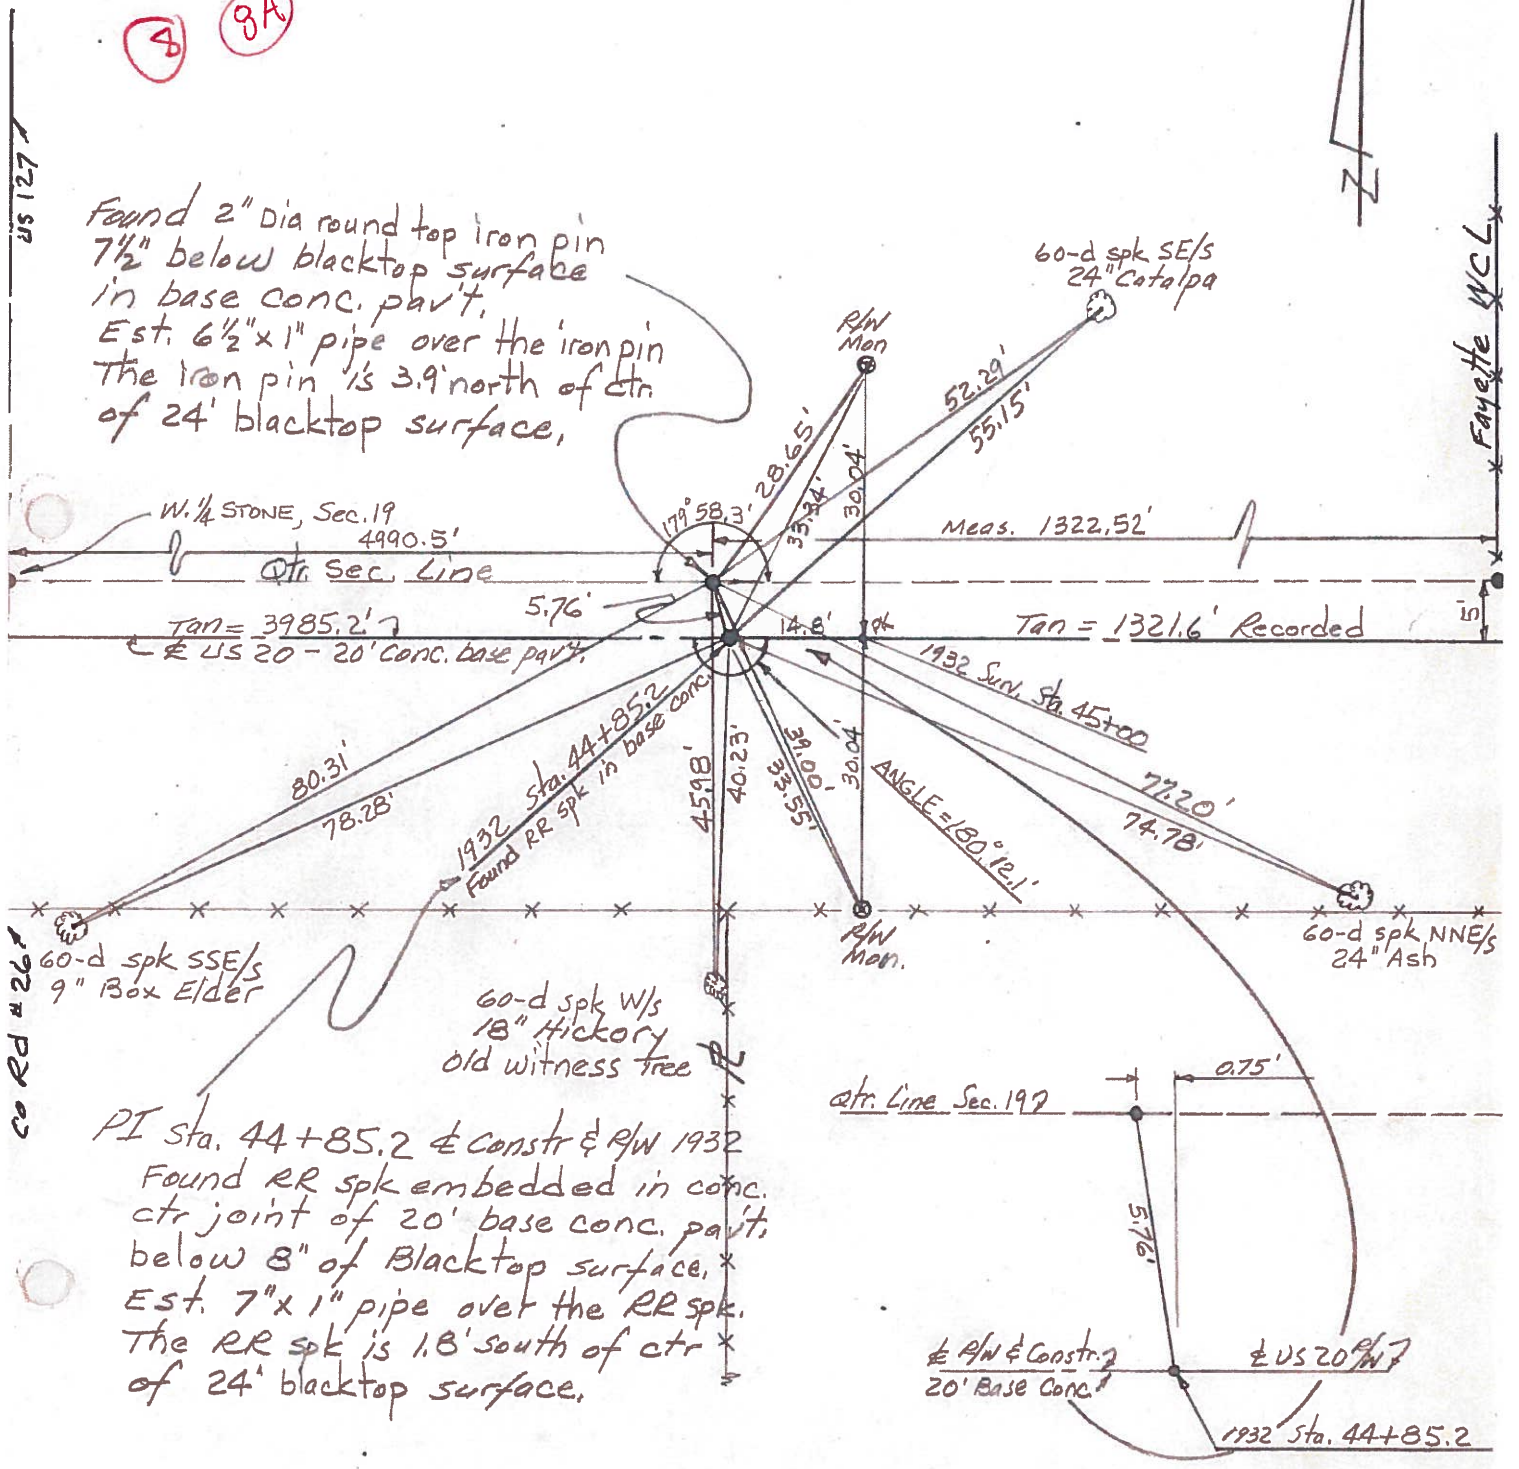 8
8A
US 127
Found 2" Dia round top iron pin
7½" below blacktop surface
in base conc. pav't.
Est. 6½" x 1" pipe over the iron pin
The iron pin is 3.9' north of ctr.
of 24' blacktop surface,
N
60-d spk SE/s
24" Catalpa
R/W
Mon
Fayette WCL
52.29'
55.15'
28.65'
33.34'
30.04'
179° 58.3'
W. ¼ STONE, Sec. 19
4990.5'
Meas. 1322.52'
Qtr. Sec. Line
5.76'
Tan = 3985.2'
₵ US 20 - 20' Conc. base pav't.
14.8'
Tan = 1321.6' Recorded
1932 Surv. Sta. 45+00
80.31'
78.28'
1932 Sta. 44+85.2
Found RR spk in base conc.
45.98'
40.23'
39.00'
33.55'
30.04'
ANGLE = 180° 12.1'
77.20'
74.78'
Co Rd #26
60-d spk SSE/s
9" Box Elder
60-d spk W/s
18" Hickory
old witness Tree
R/W
Mon.
60-d spk NNE/s
24" Ash
PI Sta. 44+85.2 ₵ Constr & R/W 1932
Found RR spk embedded in conc.
ctr joint of 20' base conc. pav't.
below 8" of Blacktop surface.
Est. 7" x 1" pipe over the RR spk.
The RR spk is 1.8' south of ctr
of 24' blacktop surface.
0.75'
Qtr. Line Sec. 19
5.76'
₵ R/W & Constr.
20' Base Conc.
₵ US 20 R/W
1932 Sta. 44+85.2